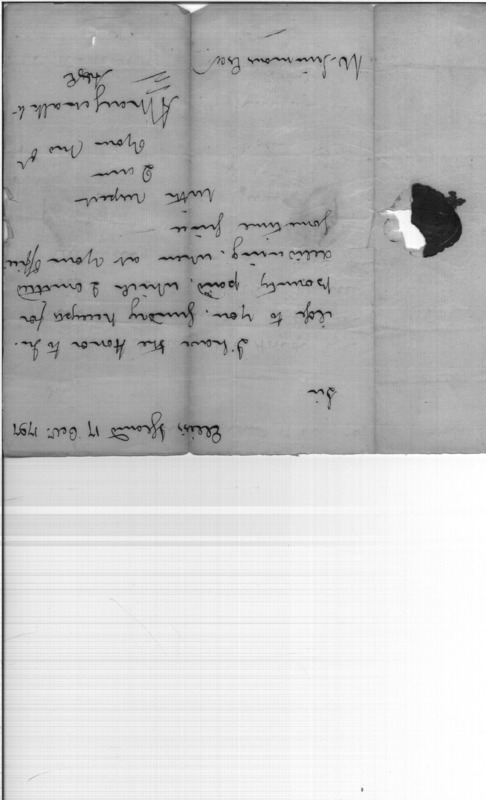 Ellis's Island 17 Oct. 1797
Sir
I have the Honor to In-
close to you, Sundry receipts for
bounty paid, which I omitted
delivering, when at your Office
some time since
with respect
I am
your Mo Ob
Mr. Simmons Esqr.